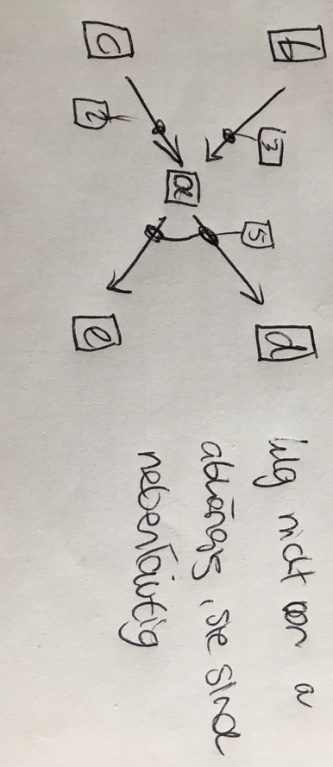 b d
3 5
a
c e
2
nicht von a
abhängig, sie sind
nebenläufig